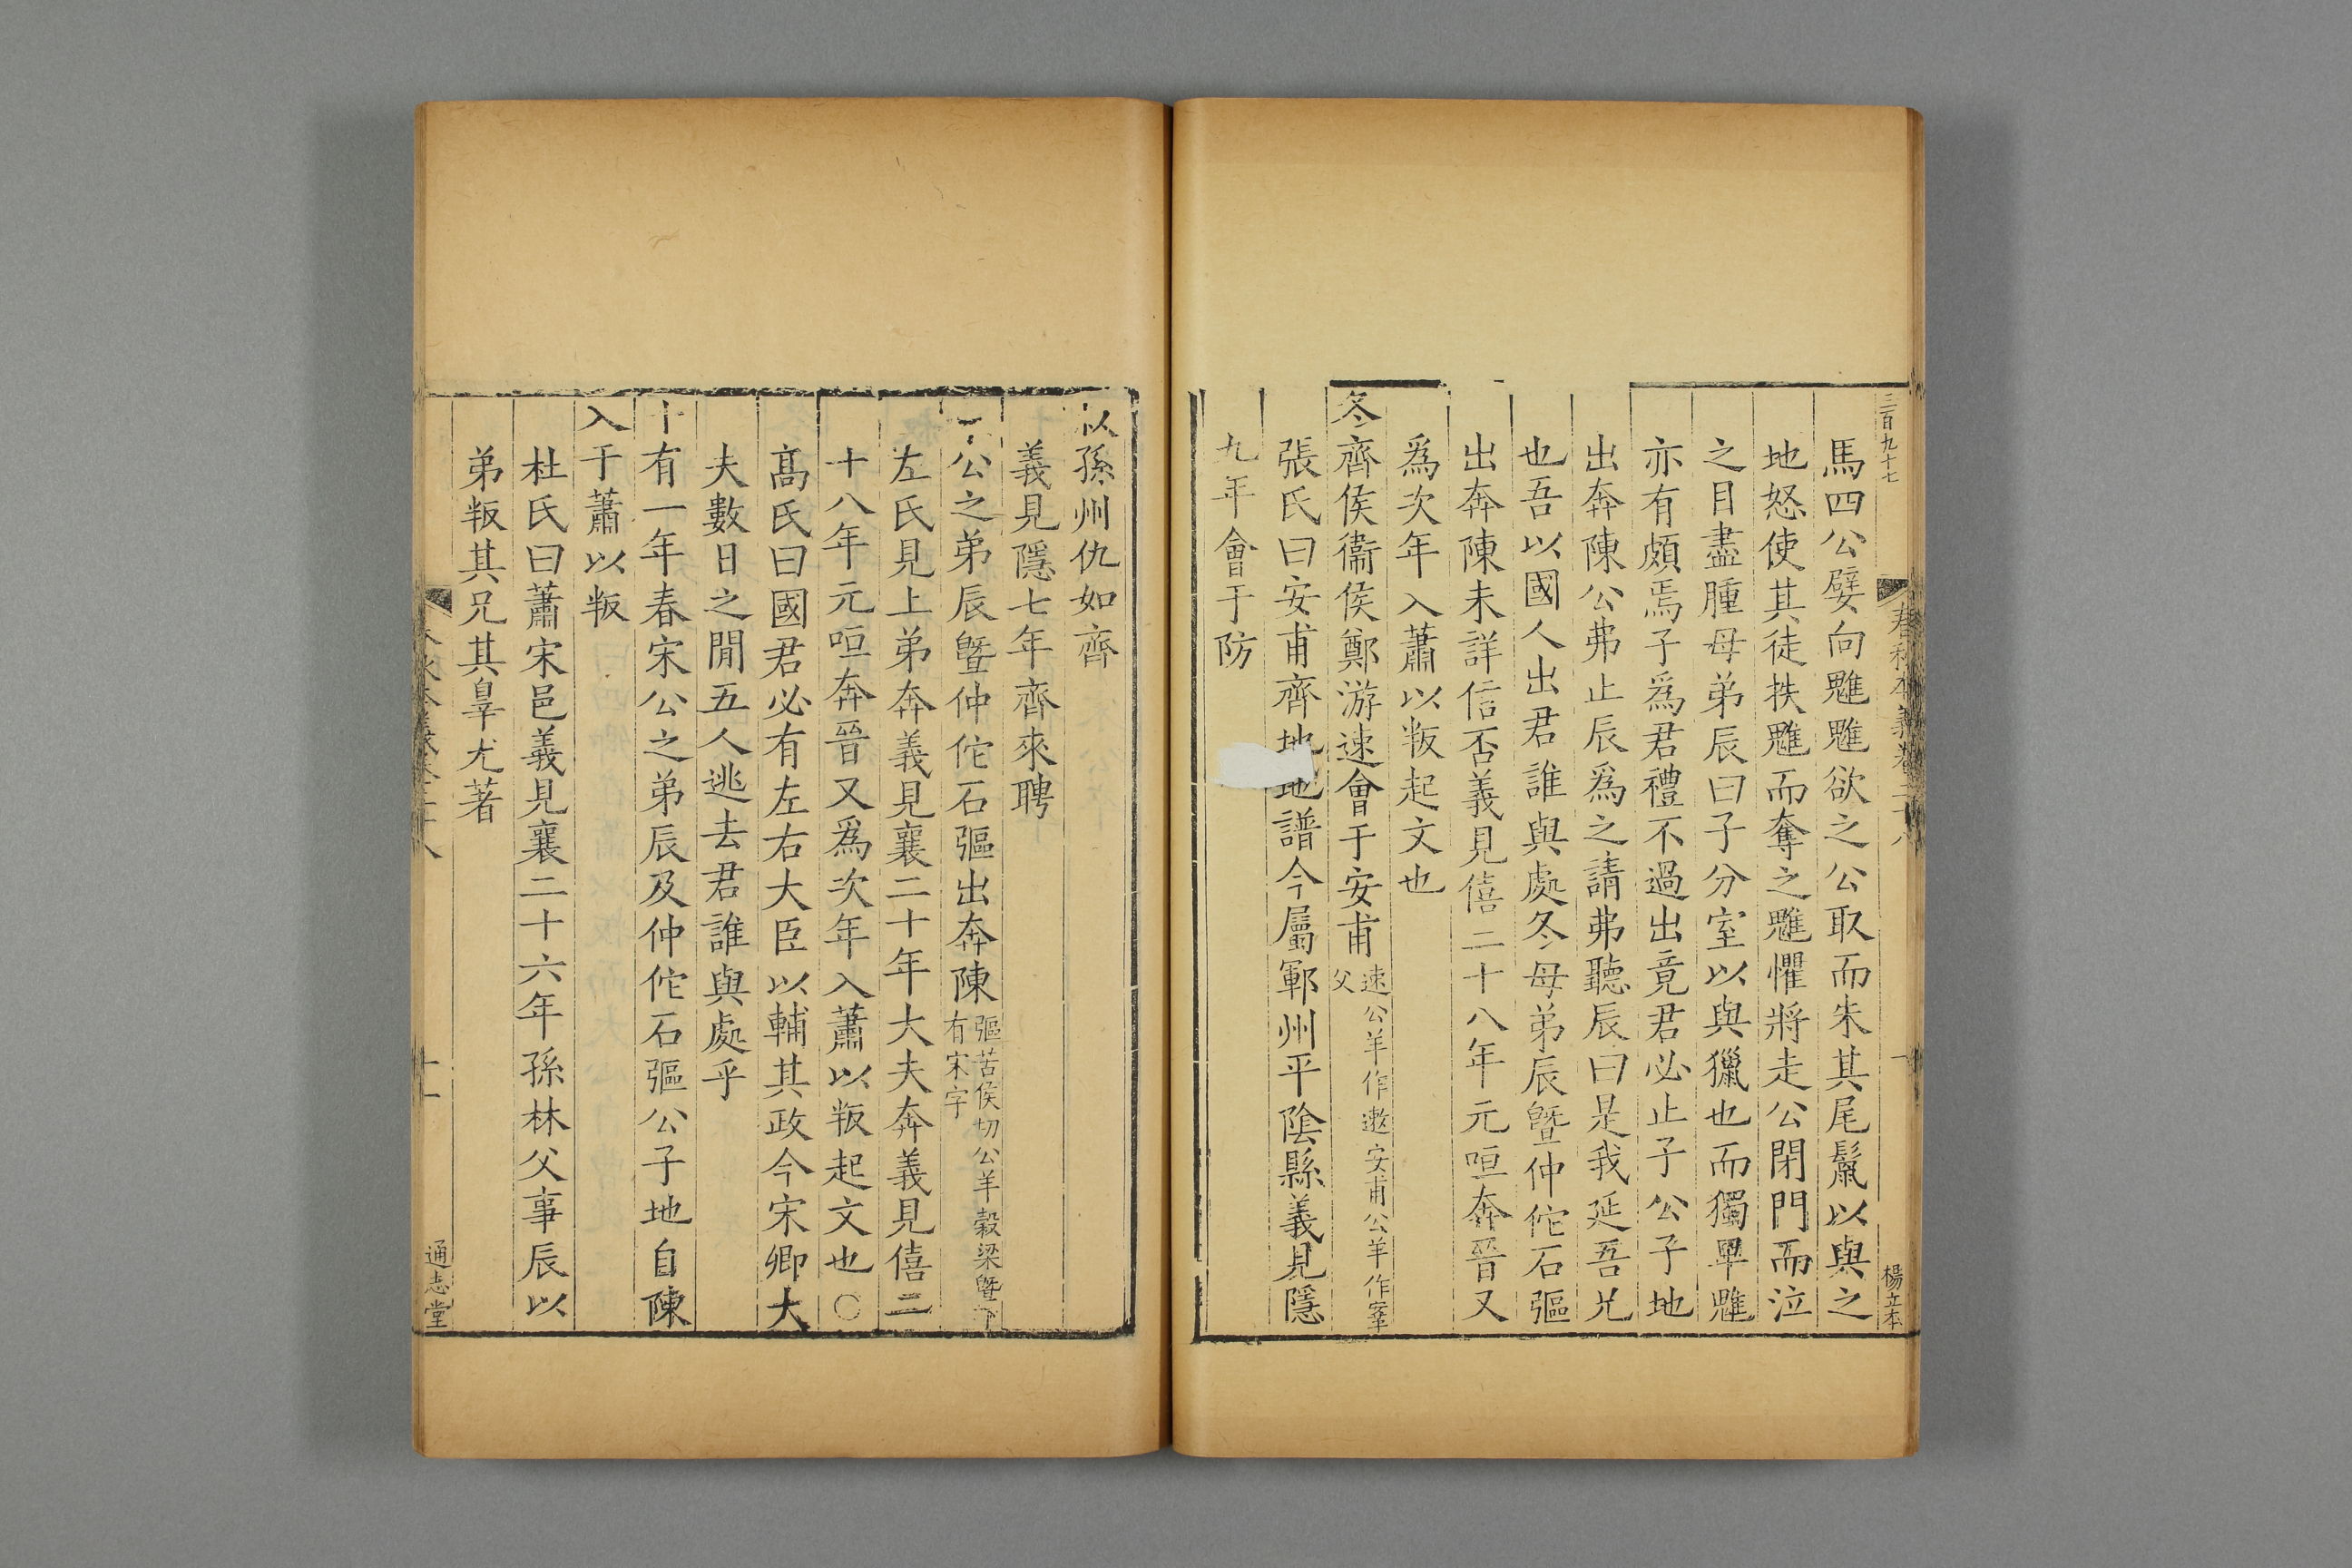 三百九十七
楊立本
馬四公嬖向魋魋欲之公取而朱其尾鬛以與之
地怒使其徒抶魋而奪之魋懼將走公閉門而泣
之目盡腫母弟辰曰子分室以與獵也而獨畢魋
亦有頗焉子爲君禮不過出竟君必止子公子地
出奔陳公弗止辰爲之請弗聽辰曰是我延吾兄
也吾以國人出君誰與處冬母弟辰曁仲佗石彄
出奔陳未詳信否義見僖二十八年元咺奔晉又
爲次年入蕭以叛起文也
冬齊侯衞侯鄭游速會于安甫速公羊作遬安甫公羊作䆫父
張氏曰安甫齊地地譜今屬鄆州平陰縣義見隱
九年會于防
以孫州仇如齊
義見隱七年齊來聘
公之弟辰曁仲佗石彄出奔陳彄苦侯切公羊穀梁曁下有宋字
左氏見上弟奔義見襄二十年大夫奔義見僖二
十八年元咺奔晉又爲次年入蕭以叛起文也○
髙氏曰國君必有左右大臣以輔其政今宋卿大
夫數日之閒五人逃去君誰與處乎
十有一年春宋公之弟辰及仲佗石彄公子地自陳
入于蕭以叛
杜氏曰蕭宋邑義見襄二十六年孫林父事辰以
弟叛其兄其辠尤著
十一
通志堂